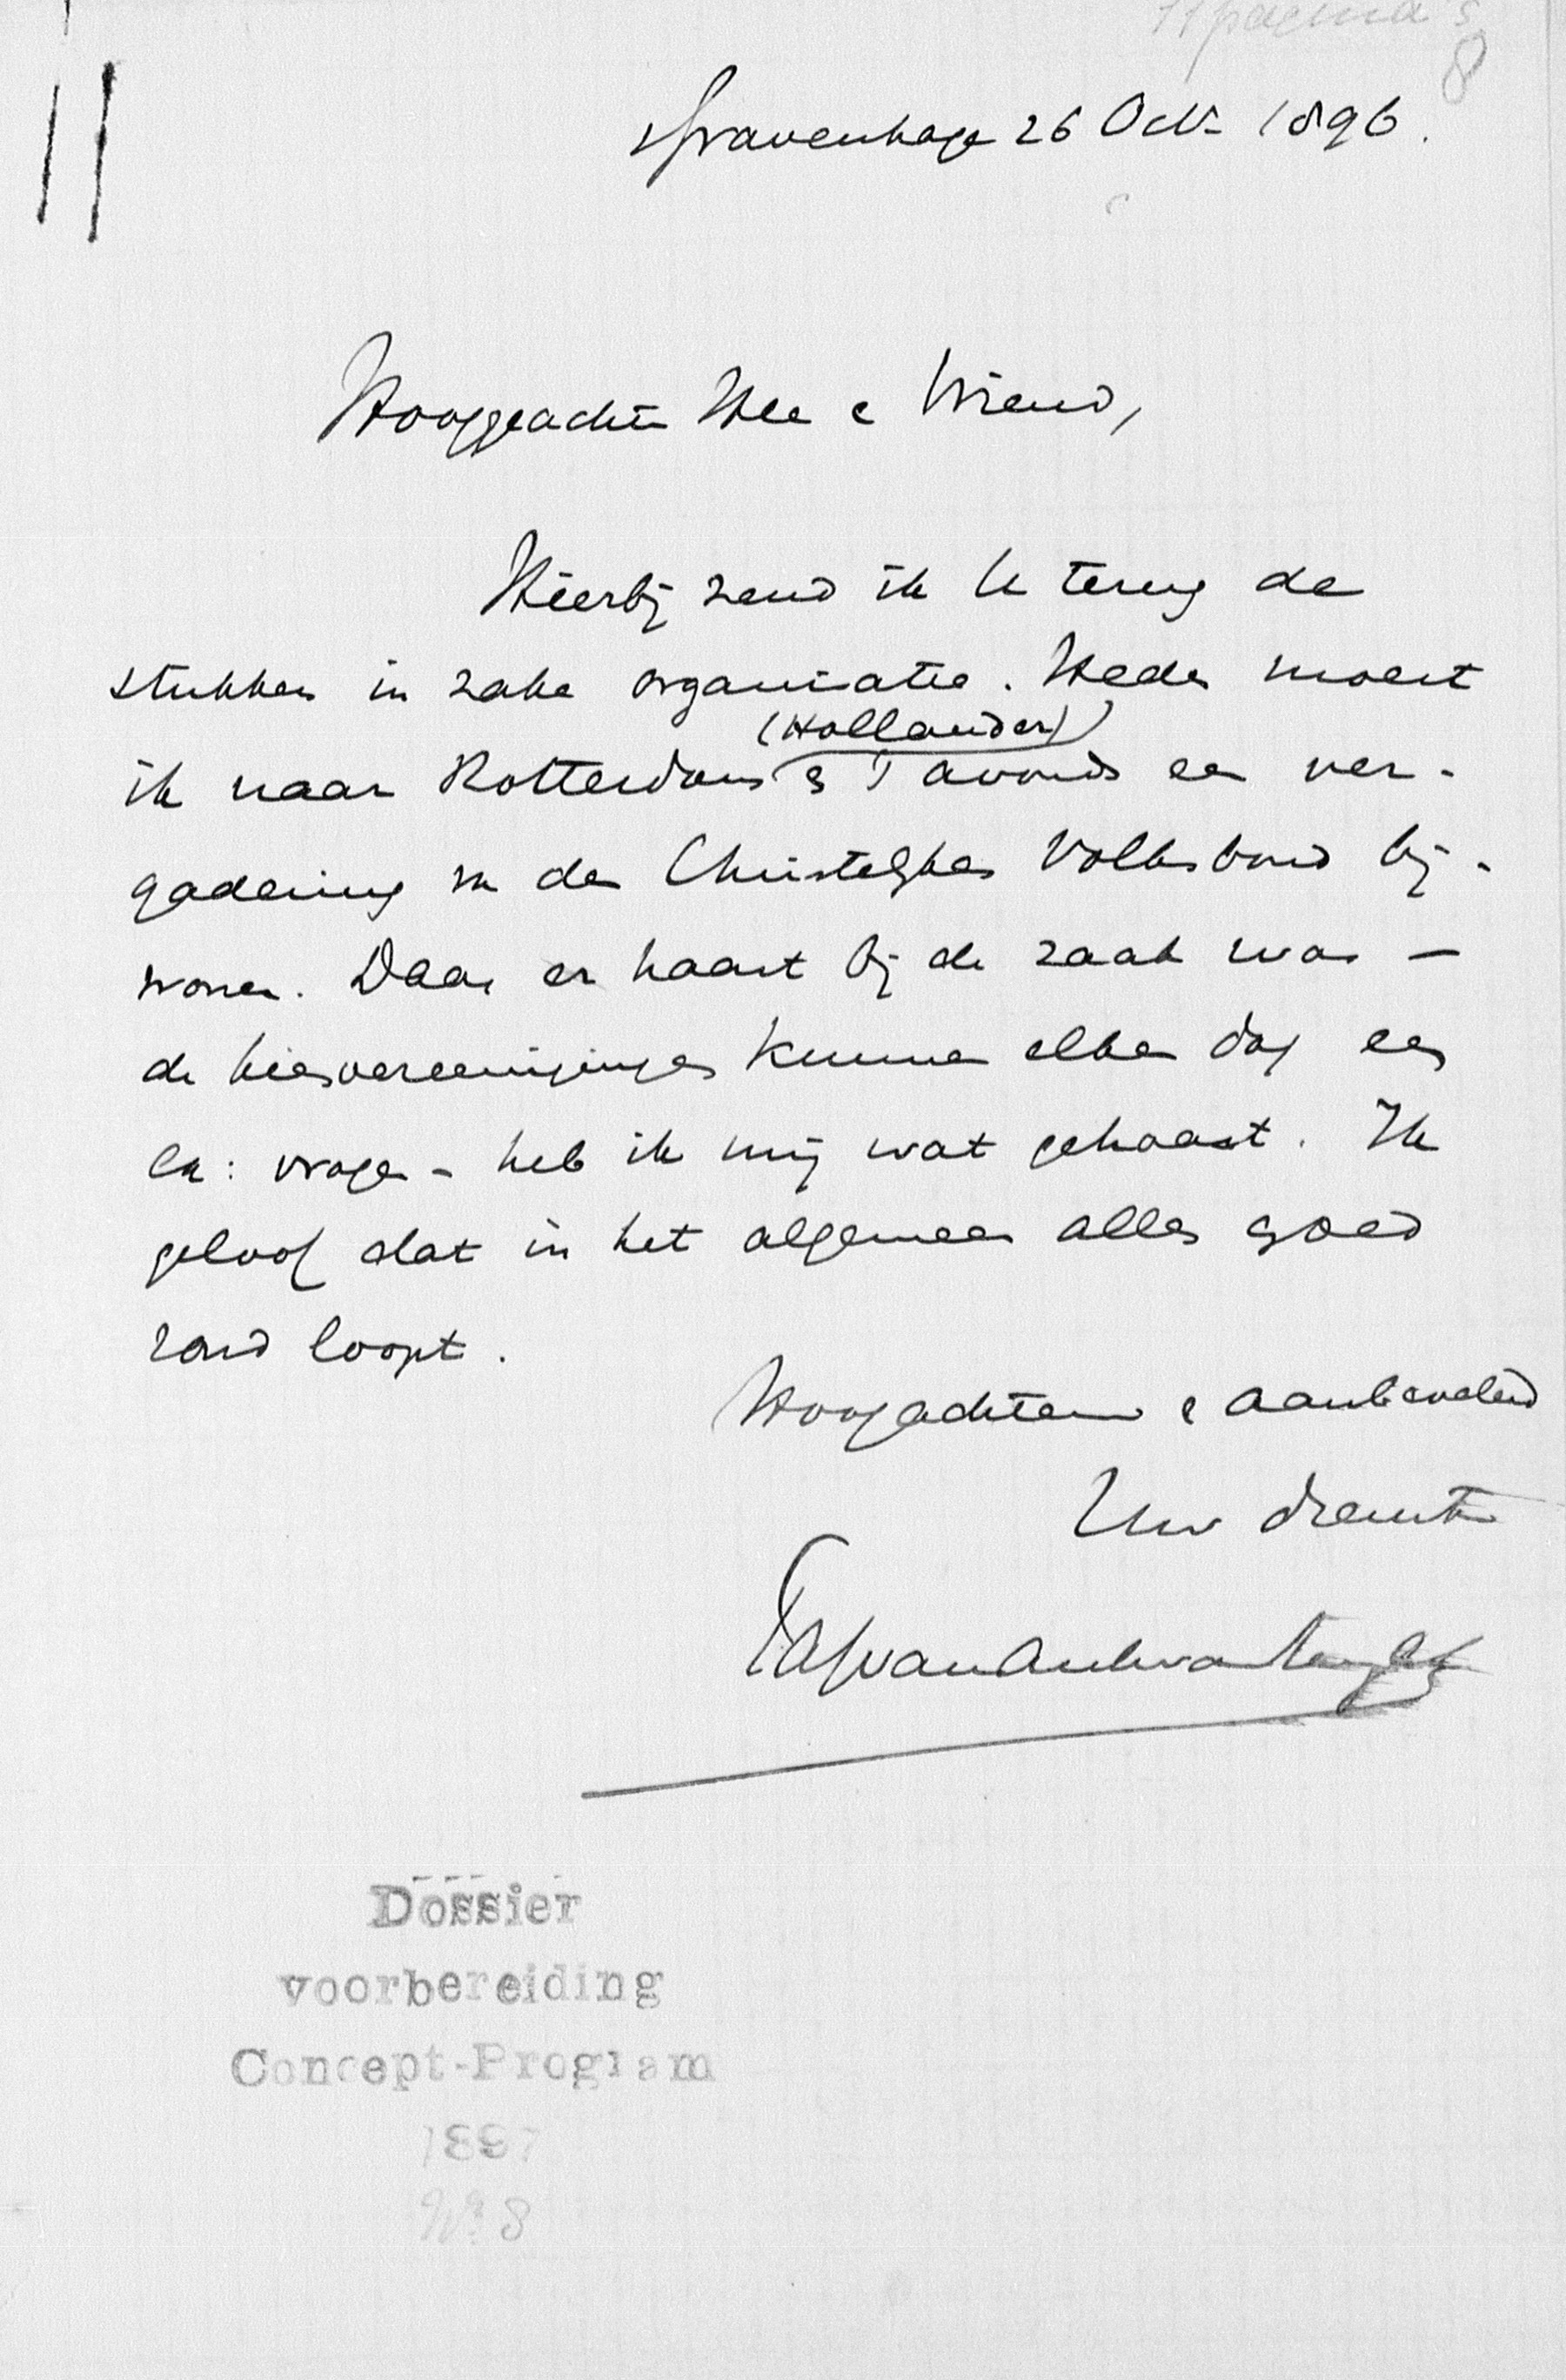 11 pagina's
8
sGravenhage 26 Oct 1896.
Hooggeachte Heer e Vriend,
Hierbij zend ik U terug de
stukken in zake organisatie. Heden moest
(Hollander)
ik naar Rotterdam & 's avonds een ver-
gadering van den Christelijken Volksbond bij-
wonen. Daar er haast bij de zaak was —
de kiesvereenigingen kunnen elken dag een
ex: vragen - heb ik mij wat gehaast. Ik
geloof dat in het algemeen alles goed
rond loopt.
Hoogachtend e aanbevelend
Uw dienstv
Dossier
voorbereiding
Concept-Program
1897
No 8